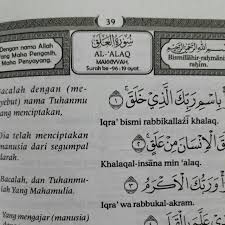 39
Dengan nama Allah
Yang Maha Pengasih,
Maha Penyayang.
سُورَةُ الْعَلَقِ
AL-'ALAQ
MAKKIYYAH,
Surah ke-96 : 19 ayat
بِسْمِ اللَّهِ الرَّحْمَٰنِ الرَّحِيمِ
Bismillāhir-raḥmānir-
raḥīm.
Bacalah dengan (me-
yebut) nama Tuhanmu
ang menciptakan,
بِاسْمِ رَبِّكَ الَّذِي خَلَقَ ۝١
Iqra' bismi rabbikallażī khalaq.
Dia telah menciptakan
manusia dari segumpal
darah.
الْإِنْسَانَ مِنْ عَلَقٍ ۝٢
Khalaqal-insāna min 'alaq.
Bacalah, dan Tuhanmu-
lah Yang Mahamulia.
وَرَبُّكَ الْأَكْرَمُ ۝٣
Iqra' wa rabbukal-akram.
Yang mengajar (manusia)